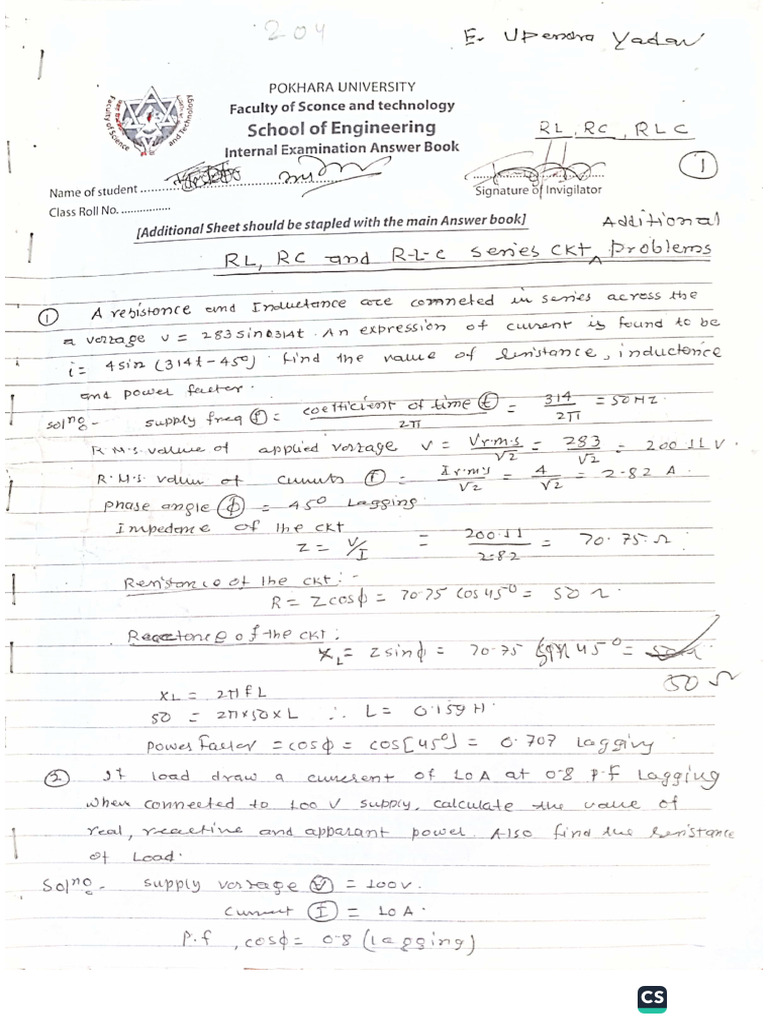 204
E. Upendra Yadav
POKHARA UNIVERSITY
Faculty of Sconce and technology
School of Engineering
Internal Examination Answer Book
RL, RC, RLC
1
Faculty of Science and Technology
Name of student
Signature of Invigilator
Class Roll No.
[Additional Sheet should be stapled with the main Answer book]
Additional
RL, RC and R-L-C series CKT ^ problems
① A resistance and Inductance are comneted in series across the
a vortage v = 283 sin 314t. An expression of current is found to be
i = 4 sin (314t - 45°). find the value of resistance, inductance
and power factor.
Solno- supply freq (f) = coefficient of time (t) / 2π = 314 / 2π = 50 Hz.
R.M.S. value of applied vortage v = Vr.m.s / √2 = 283 / √2 = 200.11 V.
R.M.S. value of current (I) = Ir.m.s / √2 = 4 / √2 = 2.82 A.
phase angle (ϕ) = 45° Lagging.
Impedence of the CKT
Z = V/I = 200.11 / 2.82 = 70.75 Ω.
Resistance of the CKT :-
R = Z cosϕ = 70.75 cos 45° = 50 Ω.
Reactance of the CKT:
XL = Z sinϕ = 70.75 sin 45° =
50 Ω
XL = 2πfL
50 = 2π×50×L ∴ L = 0.159 H.
Power factor = cosϕ = cos[45°] = 0.707 Lagging.
② It load draw a current of 10 A at 0.8 P.f Lagging
when connected to 100 V supply, calculate the value of
real, reactive and apparant power. Also find the resistance
of Load.
Solno- supply vortage (V) = 100v.
Current (I) = 10 A.
P.f, cosϕ = 0.8 (Lagging)
CS